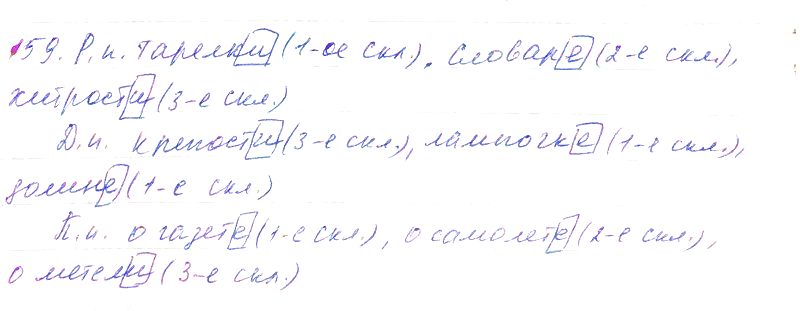 159. Р.п. тарелки (1-ое скл.), словаре (2-е скл.),
хитрости (3-е скл.)
Д.п. крепости (3-е скл.), лампочке (1-е скл.),
долине (1-е скл.)
П.п. о газете (1-е скл.), о самолете (2-е скл.),
о метели (3-е скл.)